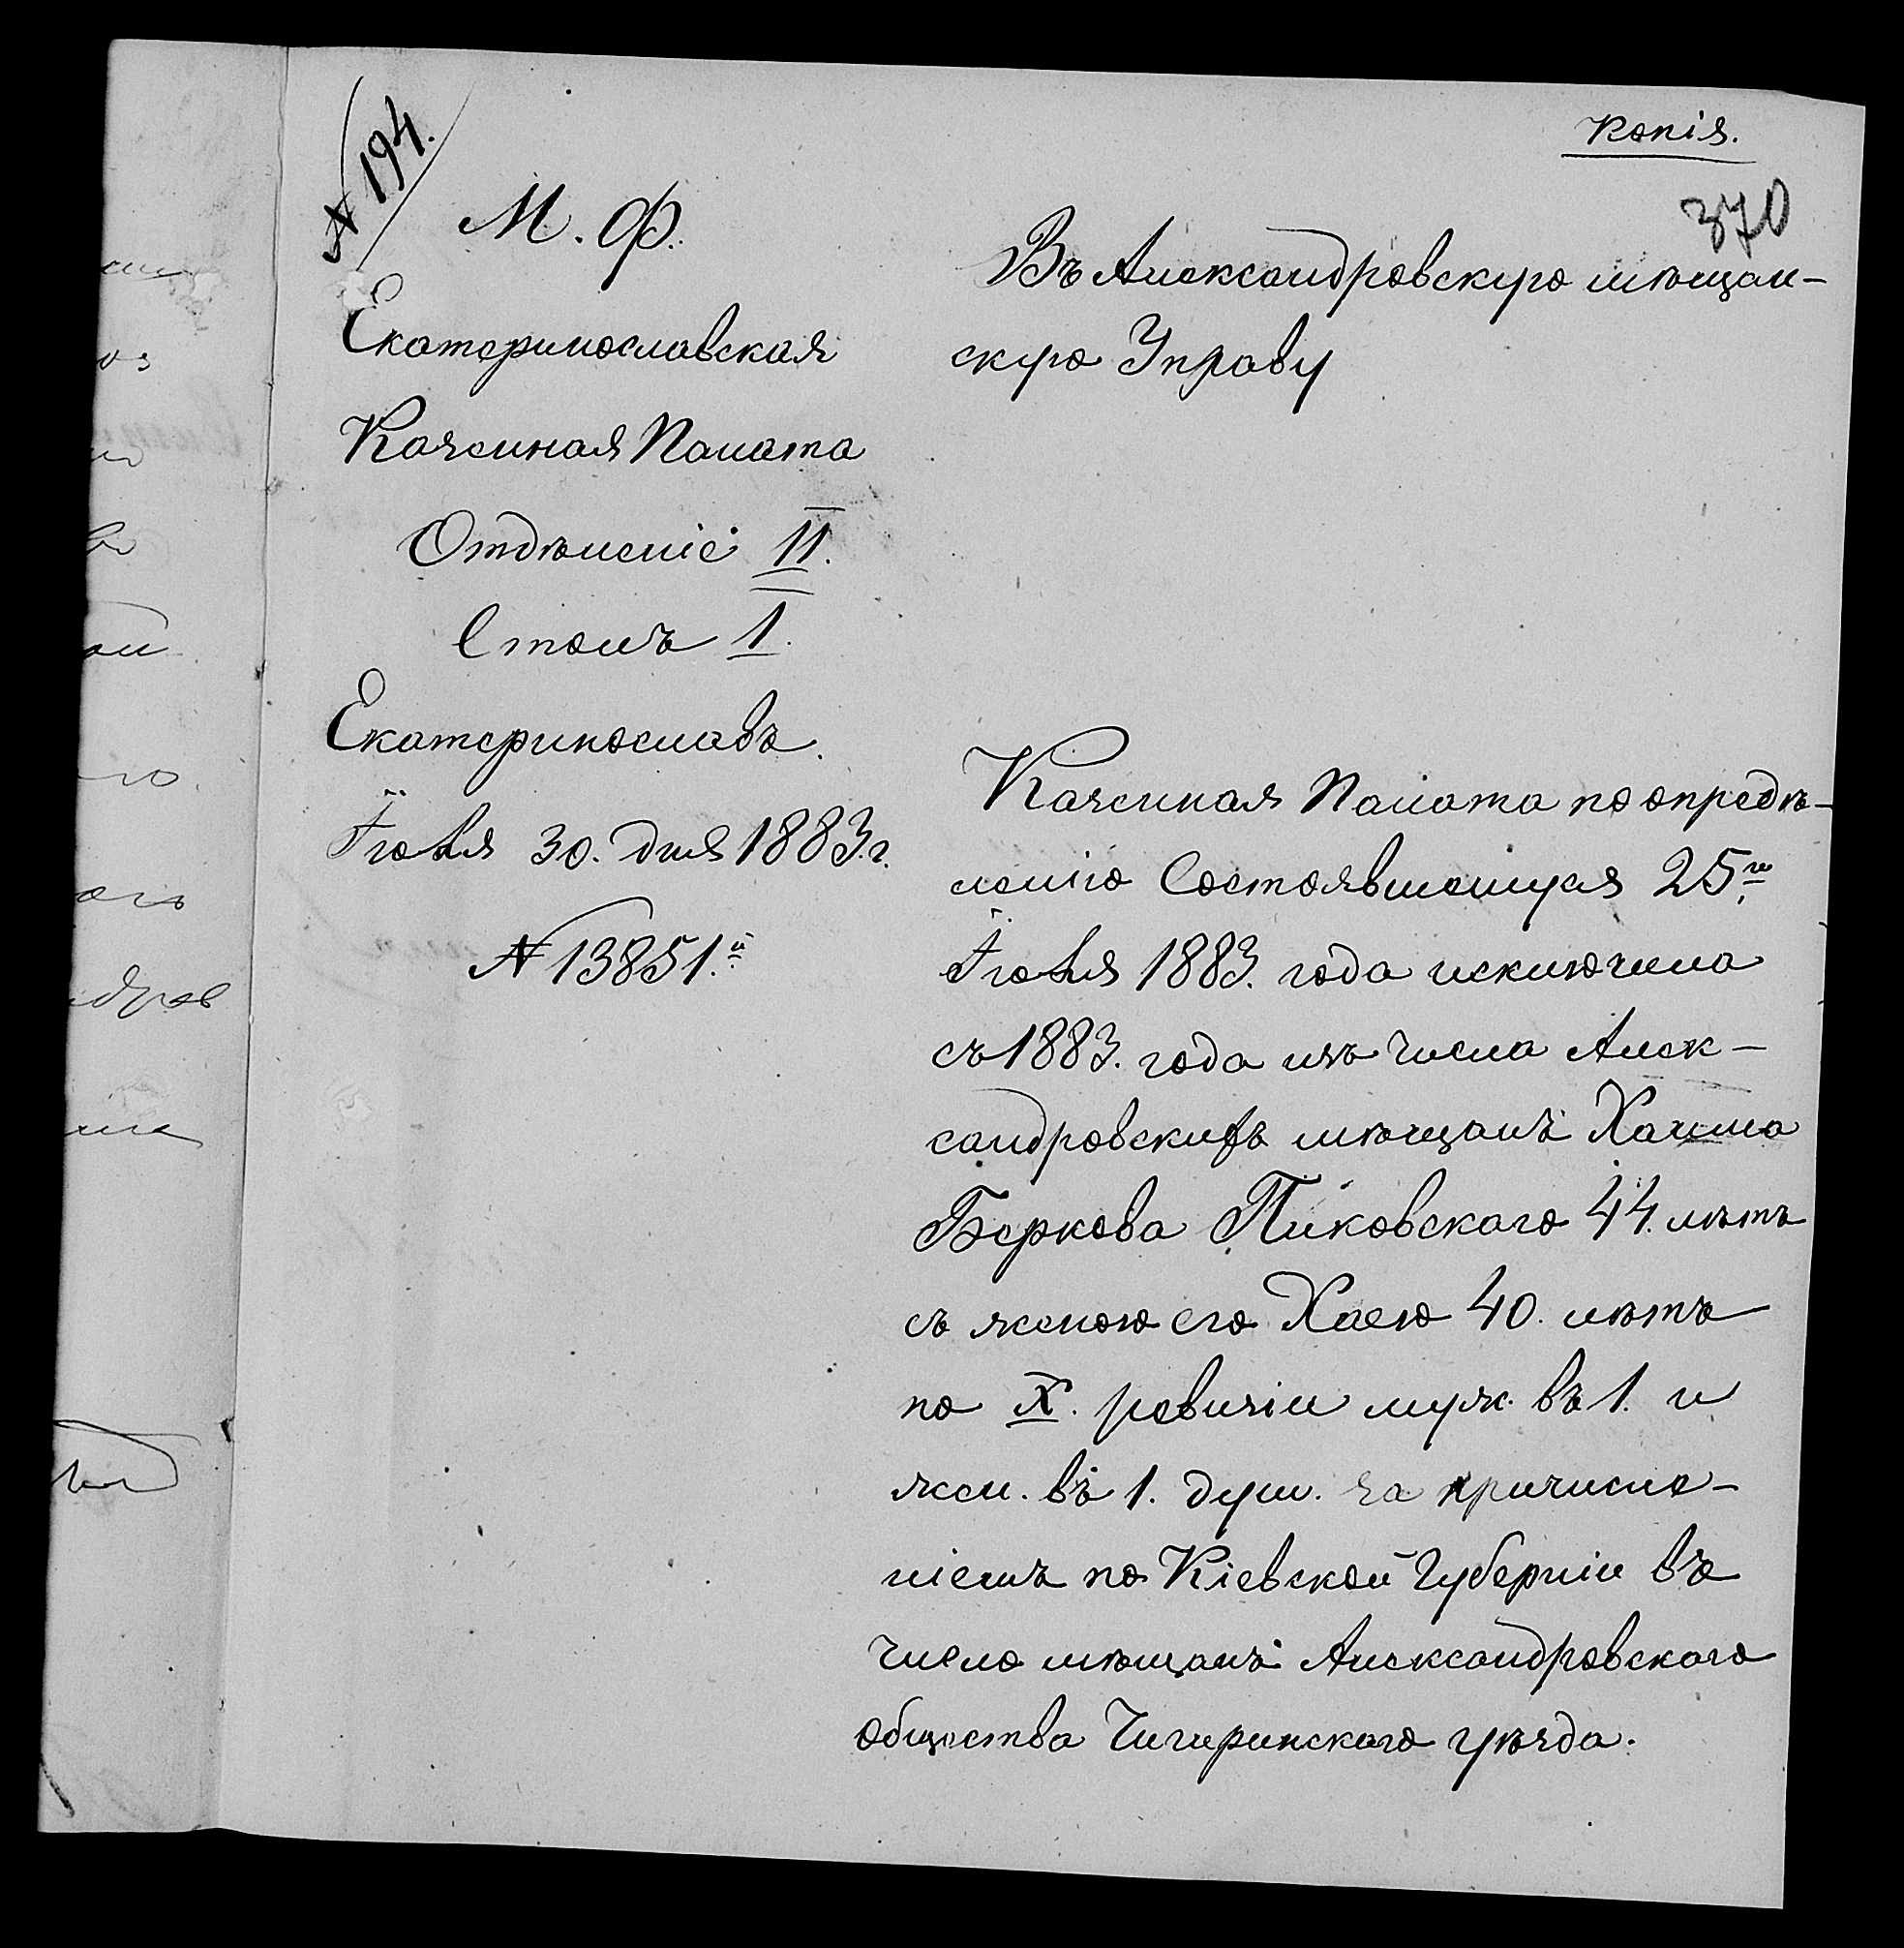 Копія.
№ 194.
370
М. Ф.
Екатеринославская
Казенная Палата
Отдѣленіе II.
Столъ 1.
Екатеринославъ.
Іюня 30. дня 1883 г.
№ 13851.й
Въ Александровскую мѣщан-
скую Управу
Казенная Палата по опредѣ-
ленію Состоявшемуся 25го
Іюня 1883. года исключила
съ 1883. года изъ числа Алек-
сандровскихъ мѣщанъ Хаима
Беркова Пиковскаго 44. лѣтъ
съ женою его Хаею 40. лѣтъ
по X. ревизіи муж. въ 1. и
жен. въ 1. душ. за причисле-
ніемъ по Кіевской Губерніи въ
число мѣщанъ Александровскаго
общества Чигиринскаго уѣзда.